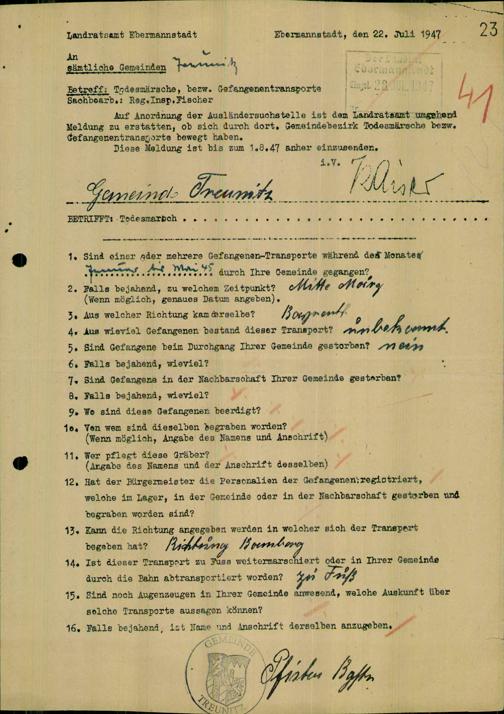 Landratsamt Ebermannstadt Ebermannstadt, den 22. Juli 1947
23
An
sämtliche Gemeinden Treunitz
Ebermannstadt
41
Betreff: Todesmärsche, bezw. Gefangenentransporte
Sachbearb.: Reg.Insp.Fischer
Auf Anordnung der Ausländersuchstelle ist dem Landratsamt umgehend
Meldung zu erstatten, ob sich durch dort. Gemeindebezirk Todesmärsche bezw.
Gefangenentransporte bewegt haben.
Diese Meldung ist bis zum 1.8.47 anher einzusenden.
i.V.
Gemeinde Treunitz
BETRIFFT: Todesmarsch
1. Sind einer oder mehrere Gefangenen-Transporte während des Monates
Januar bis Mai 45 durch Ihre Gemeinde gegangen?
2. Falls bejahend, zu welchem Zeitpunkt? Mitte März
(Wenn möglich, genaues Datum angeben).
3. Aus welcher Richtung kam derselbe? Bayreuth.
4. Aus wieviel Gefangenen bestand dieser Transport? unbekannt.
5. Sind Gefangene beim Durchgang Ihrer Gemeinde gestorben? nein
6. Falls bejahend, wieviel?
7. Sind Gefangene in der Nachbarschaft Ihrer Gemeinde gestorben?
8. Falls bejahend, wieviel?
9. Wo sind diese Gefangenen beerdigt?
10. Von wem sind dieselben begraben worden?
(Wenn möglich, Angabe des Namens und Anschrift)
11. Wer pflegt diese Gräber?
(Angabe des Namens und der Anschrift desselben)
12. Hat der Bürgermeister die Personalien der Gefangenen registriert,
welche im Lager, in der Gemeinde oder in der Nachbarschaft gestorben und
begraben worden sind?
13. Kann die Richtung angegeben werden in welcher sich der Transport
begeben hat? Richtung Bamberg
14. Ist dieser Transport zu Fuss weitermarschiert oder in Ihrer Gemeinde
durch die Bahn abtransportiert worden? zu Fuß
15. Sind noch Augenzeugen in Ihrer Gemeinde anwesend, welche Auskunft über
solche Transporte aussagen können?
16. Falls bejahend, ist Name und Anschrift derselben anzugeben.
GEMEINDE
TREUNITZ